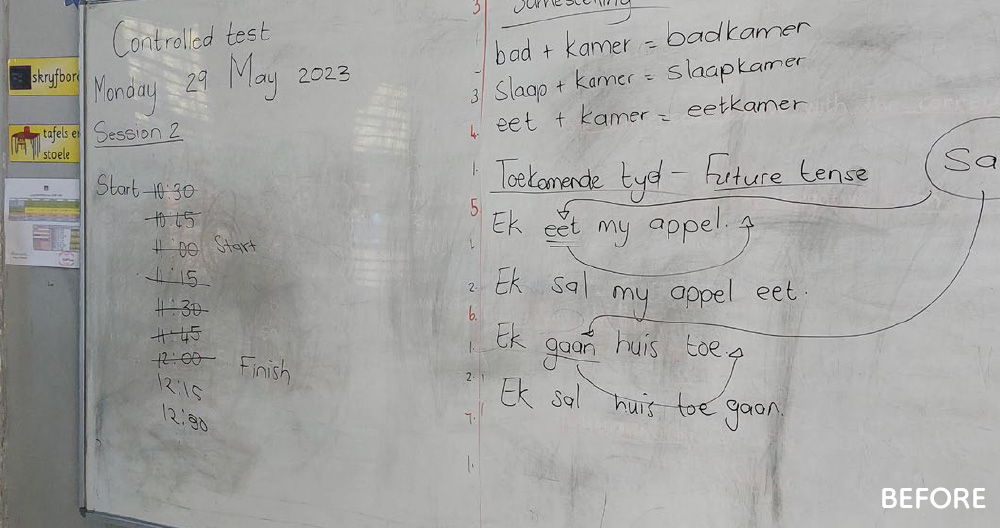 skryfbord
tafels en
stoele
Controlled test
Monday 29 May 2023
Session 2
Start 10:30
10:45
11:00 Start
11:15
11:30
11:45
12:00 Finish
12:15
12:30
3
Samestelling
bad + kamer = badkamer
3 Slaap + kamer = slaapkamer
eet + kamer = eetkamer
4.
1. Toekomende tyd - Future tense
Sa
5
Ek eet my appel.
1.
2. Ek sal my appel eet.
6.
1. Ek gaan huis toe.
2. Ek sal huis toe gaan.
7.
1.
BEFORE